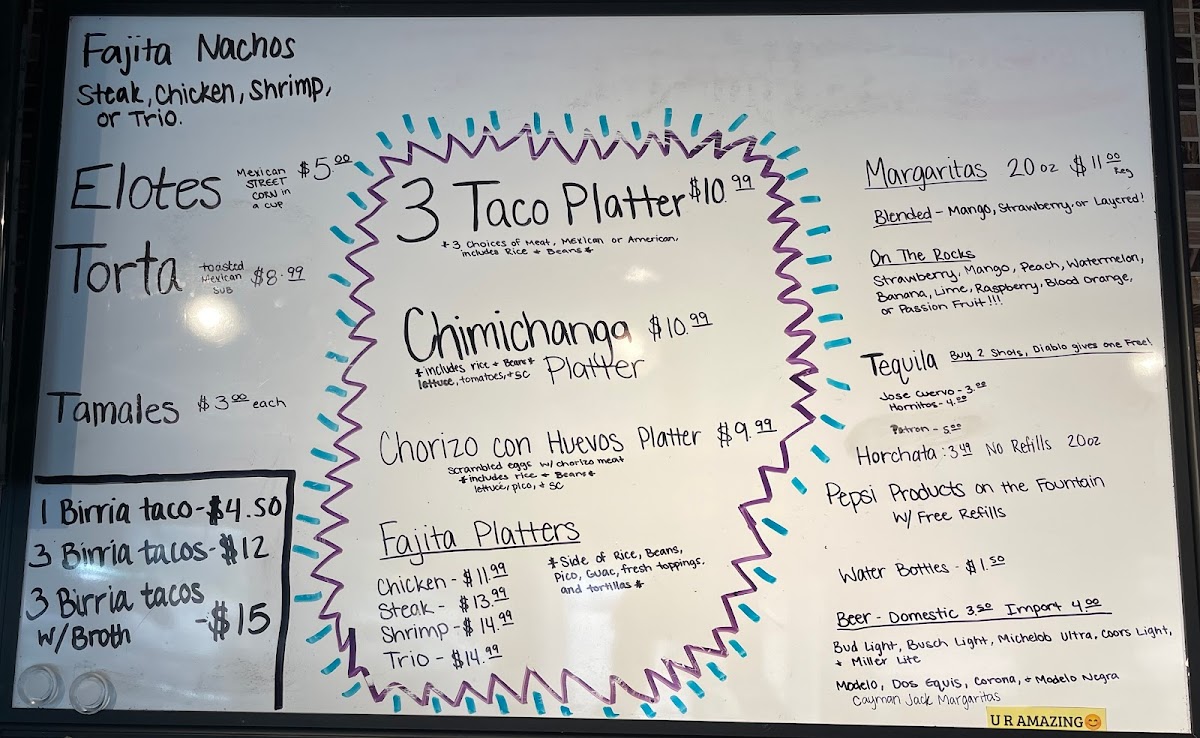 Fajita Nachos
Steak, Chicken, Shrimp,
or Trio.
Elotes Mexican STREET CORN in a cup $5.00
Torta toasted Mexican SUB $8.99
Tamales $3.00 each
1 Birria taco-$4.50
3 Birria tacos-$12
3 Birria tacos
w/Broth -$15
3 Taco Platter $10.99
*3 Choices of Meat, Mexican or American,
includes Rice + Beans*
Chimichanga $10.99
*includes rice + Beans*
lettuce, tomatoes, + SC
Platter
Chorizo con Huevos Platter $9.99
Scrambled eggs w/ chorizo meat
*includes rice + Beans*
lettuce, pico, + SC
Fajita Platters
Chicken - $11.99
Steak - $13.99
Shrimp - $14.99
Trio - $14.99
*Side of Rice, Beans,
Pico, Guac, fresh toppings,
and tortillas*
Margaritas 20oz $11.00 Reg
Blended - Mango, Strawberry, or Layered!
On The Rocks
Strawberry, Mango, Peach, Watermelon,
Banana, Lime, Raspberry, Blood Orange,
or Passion Fruit!!!
Tequila Buy 2 Shots, Diablo gives one Free!
Jose Cuervo - 3.00
Hornitos - 4.00
Patron - 5.00
Horchata: 3.49 No Refills 20oz
Pepsi Products on the Fountain
w/ Free Refills
Water Bottles - $1.50
Beer - Domestic 3.50 Import 4.00
Bud Light, Busch Light, Michelob Ultra, Coors Light,
+ Miller Lite
Modelo, Dos Equis, Corona, + Modelo Negra
Cayman Jack Margaritas
U R AMAZING😊